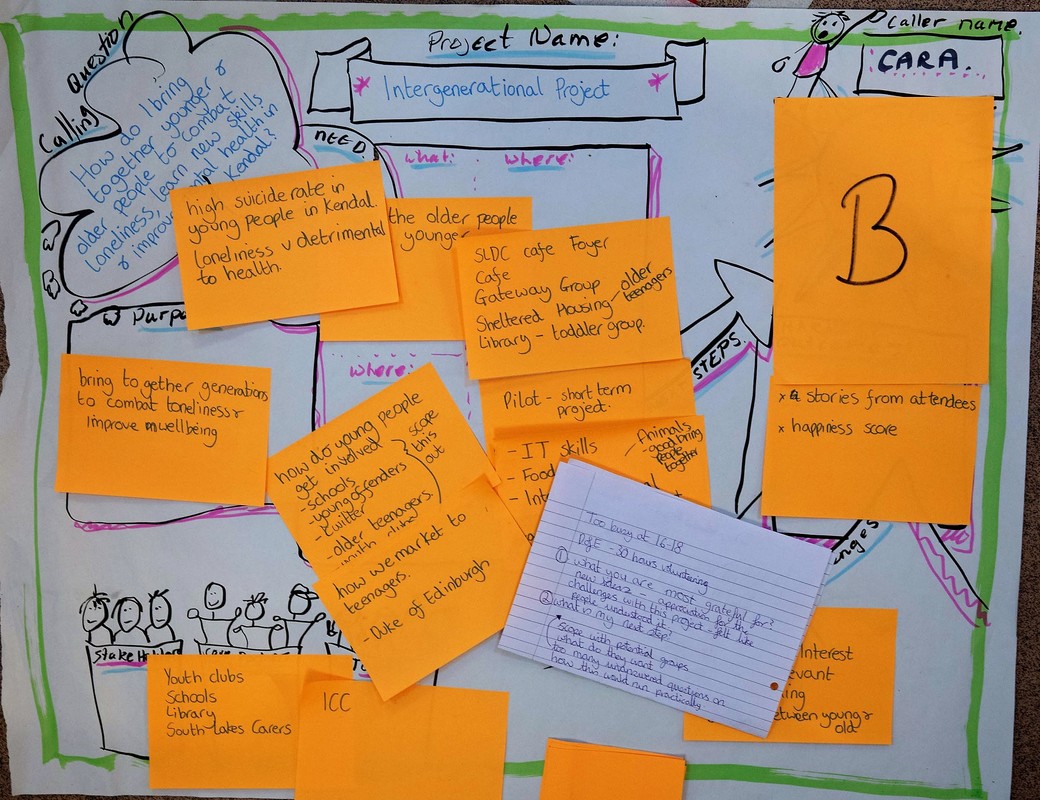 Calling Question
How do I bring
together younger &
older people to combat
loneliness, learn new skills
& improve mental health in
Kendal?
Project Name:
Intergenerational Project
Caller name.
CARA.
NEED
what: where:
high suicide rate in
young people in Kendal.
loneliness v detrimental
to health.
the older people
younger
SLDC cafe Foyer
Cafe
Gateway Group
Sheltered Housing - older
teenagers
Library - toddler group.
B
STEPS.
x 4 stories from attendees
x happiness score
bring together generations
to combat loneliness &
improve wellbeing
where:
Pilot - short term
project.
- IT skills
- Food
- Int
Animals
- good bring
people
together
how do young people
get involved
- schools
- young offenders
- twitter
- older teenagers.
scope
this
out
how we market to
teenagers.
- Duke of Edinburgh
Too busy at 16-18
DofE - 30 hours volunteering
① what you are most grateful for?
new ideas - appreciation for the
challenges with this project - felt like
people understood it!
② what is my next step?
Scope with potential groups
what do they want
too many unanswered questions on
how this would run practically
Stake Holders
Youth clubs
Schools
Library
South Lakes Carers
ICC
interest
evant
ing
etween young &
old